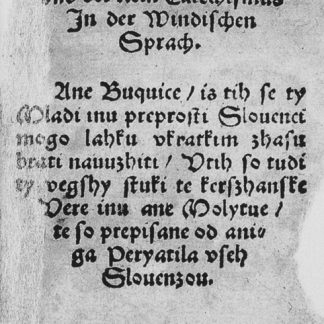 der Catechismus
In der Windischen
Sprach.
Ane Buquice / is tih se ty
Mladi inu preprosti Slouenci
mogo lahku vkratkim zhasu
brati nauuzhiti / Vtih so tudi
ty vegshy stuki te kerszhanske
Vere inu ane Molytue /
te so prepisane od ani-
ga Peryatila vseh
Slouenzou.